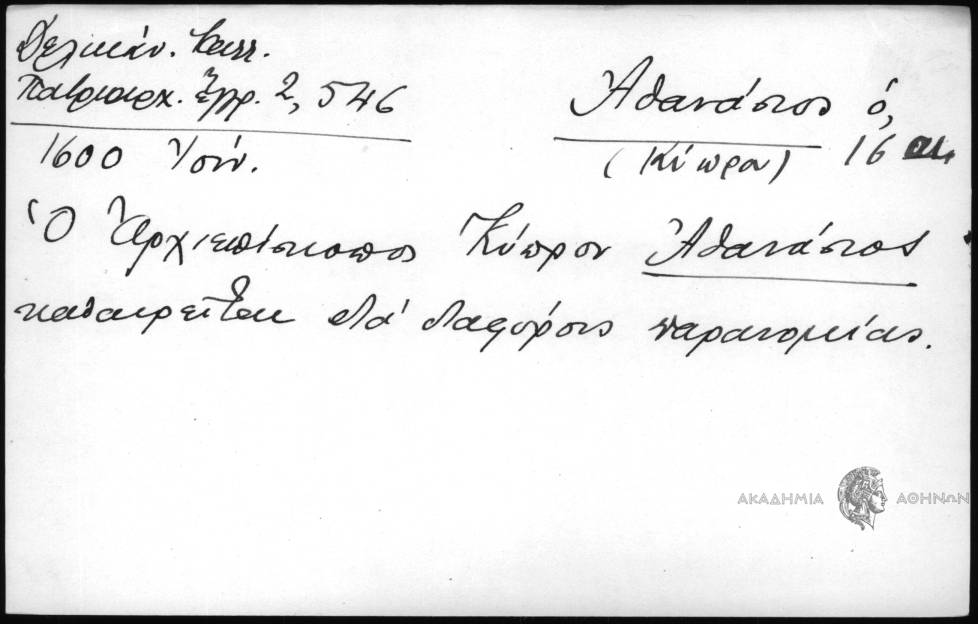 Δελικάν. Καλλ.
Πατριαρχ. Ἔγγρ. 2, 546
1600 Ἰούν.
Ἀθανάσιος ὁ,
(Κύπρου) 16 αι.
Ὁ Ἀρχιεπίσκοπος Κύπρου Ἀθανάσιος
καθαιρεῖται διά διαφόρους παρανομίας.
ΑΚΑΔΗΜΙΑ ΑΘΗΝΩΝ